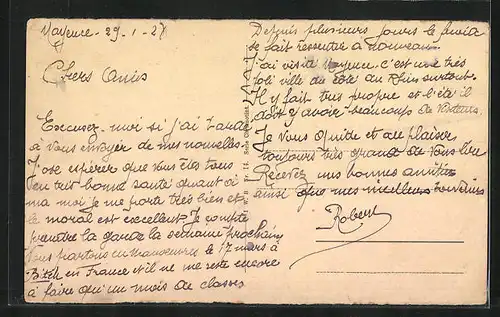 Mayence - 29-1-27
Chers Amis
Excusez-moi si j'ai tardé
à vous envoyer de mes nouvelles
J'ose espérer que vous êtes tous
en très bonne santé quant à
ma moi je me porte très bien et
le moral est excellent. Je compte
prendre la garde la semaine prochain
Nous partons en manœuvres le 17 mars à
Bitch en France et il ne me reste encore
à faire qu'un mois de classes
Depuis plusieurs jours le froid
se fait ressentir à nouveau
j'ai visité Mayence c'est une très
joli ville du côté du Rhin surtout.
Il y fait très propre et l'été il
doit y avoir beaucoups de visiteurs.
Je vous quide et au plaisir
toujours très grand de vous lire
Recevez mes bonnes amitiés
ainsi que mes meilleurs souvenirs
Robert